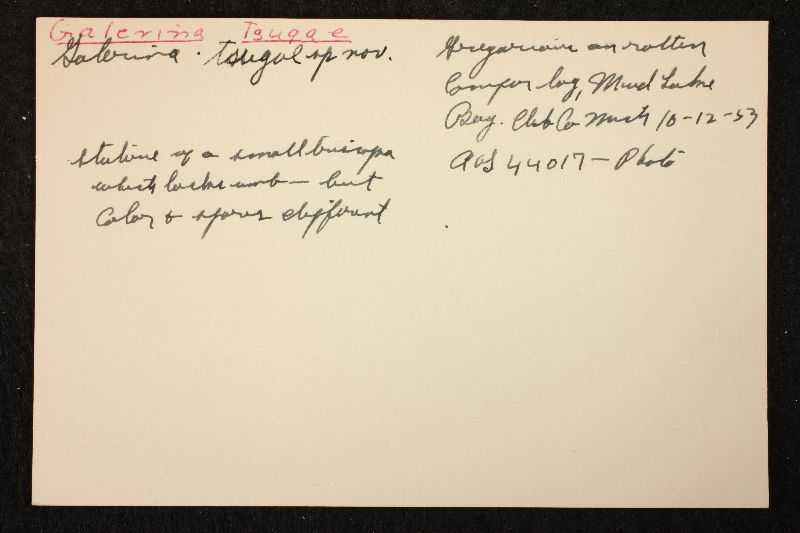 Galerina Tsugae
Galerina . tsugae sp nov.
stature of a small
which lacks umb — but
Color & spores different
Gregarious on rotten
Conifer log, Mud Lake
Bog. Cheb Co Mich 10-12-53
AHS 44017 — Photo